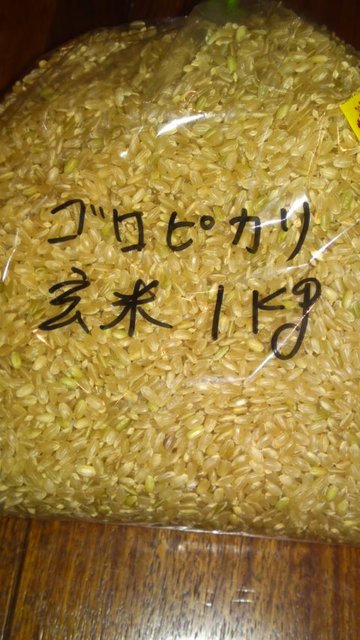 ゴロピカリ
玄米 1Kg